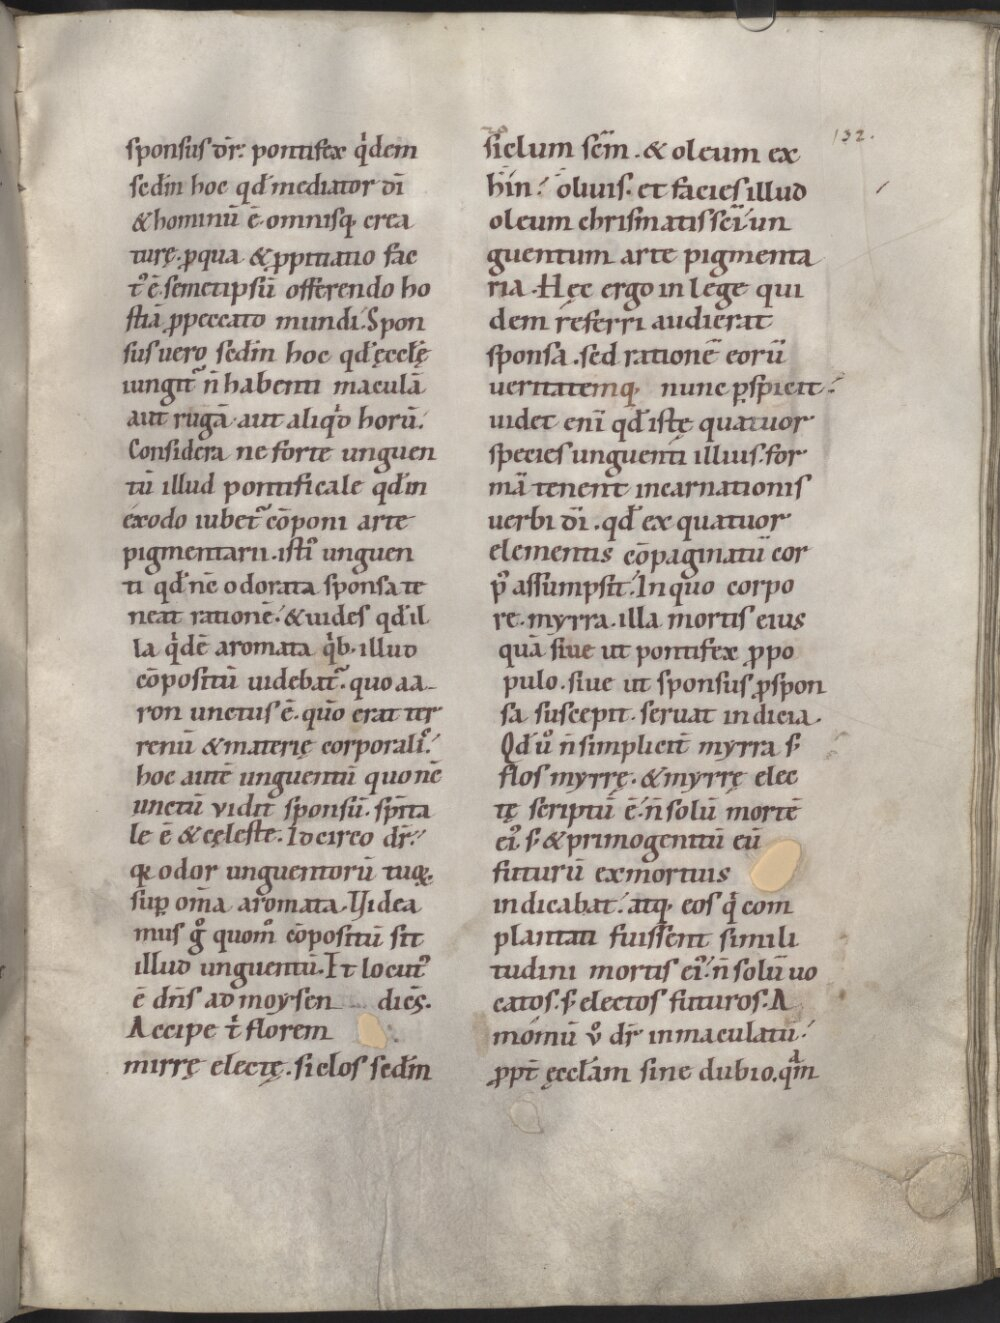 sponsus dr̄. pontifex q̇dem
sedm̄ hoc qd̄ mediator dī
& hominū ē. omnisq; crea
turę. ꝑ qua & ꝓpitiatio fac
tꝰ ē. semetipsū offerendo ho
stiā ꝓ peccato mundi. Spon
sus uero sedm̄ hoc qd̄ ęcclę
iungit̄ n̄ habenti maculā
aut rugā. aut aliqd̄ horū.
Considera ne forte unguen
tū illud pontificale qd̄ in
exodo iubet̄ cōponi arte
pigmentarii. istiꝰ unguen
ti qd̄ nc̄ odorata sponsa te
neat rationē. & uides qd̄ il
la q̇dē aromata q̇b; illud
cōpositū uidebat̄. quo aa-
ron unctus ē. quō erat ter
renū & materię corporaliꝰ.
hoc autē unguentū quo nc̄
unctū vidit sponsū. spīta
le ē & cęleste. Idcirco dr̄.
qꝛ odor unguentorū tuoꝝ.
suꝑ om̄a aromata. Videa
mus gͦ quom̊ cōpositū sit
illud unguentū. Et locutꝰ
ē dn̄s ad moysen dicēs.
Accipe t̄ florem
mirrę electę. siclos sedm̄
132.
siclum sc̄m. & oleum ex
hīn. oliuis. et facies illud
oleum chrismatis sc̄i. un
guentum arte pigmenta
ria. Hęc ergo in lege qui
dem referri audierat
sponsa. sed rationē eorū
ueritatemq; nunc ꝑspicit.
uidet enī qd̄ istę quatuor
species unguenti illius. for
mā tenent incarnationis
uerbi dī. qd̄ ex quatuor
elementis cōpaginatū cor
pꝰ assumpsit. In quo corpo
re. myrra. illa mortis eius
quā siue ut pontifex ꝓ po
pulo. siue ut sponsus ꝓ spon
sa suscepit. seruat indicia.
Qd̄ ů n̄ simplicit̄ myrra s;
flos myrrę. & myrrę elec
tę scriptū ē. n̄ solū mortē
eiꝰ. s; & primogenitū eū
futurū ex mortuis
indicabat. atq; eos q̇ com
plantati fuissent simili
tudini mortis eiꝰ. n̄ solū uo
catos. s; electos futuros. A
momū ů dr̄ inmaculatū.
ꝓpt̄ ęccl̄am sine dubio. qm̄